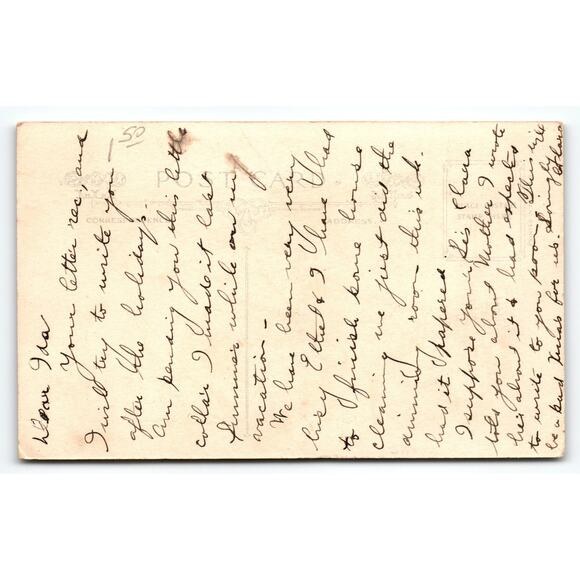 1 50
POST CARD
CORRESPONDENCE
ADDRESS
Dear Ida
Your letter rec and
I will try to write you
after the holiday.
Am sending you this little
collar I made it last
Summer while on my
vacation -
We have been very very
busy Ethel & I have I had
to finish some house
cleaning we just did the
dinning room this wk.
had it papered.
I suppose your Sis Clara
told you about Mother I wrote
her about it & had expects
to write to you soon This will
be a sad Xmas for us.